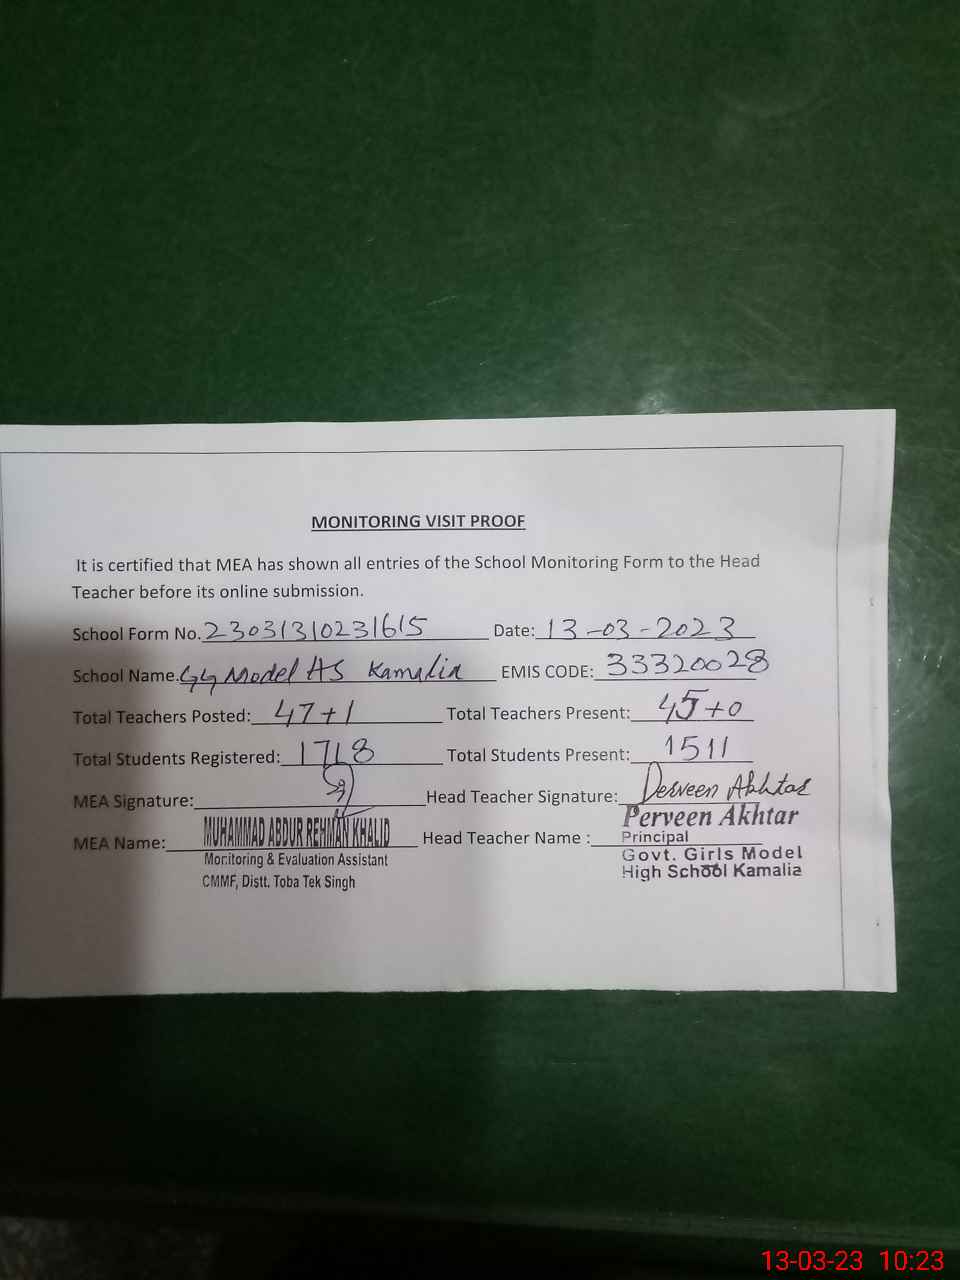 MONITORING VISIT PROOF
It is certified that MEA has shown all entries of the School Monitoring Form to the Head
Teacher before its online submission.
School Form No. 2303131023 1615 Date: 13-03-2023
School Name. GG Model HS Kamalia EMIS CODE: 33320028
Total Teachers Posted: 47+1 Total Teachers Present: 45+0
Total Students Registered: 1718 Total Students Present: 1511
MEA Signature: Head Teacher Signature: Perveen Akhtar
MEA Name: MUHAMMAD ABDUR REHMAN KHALID Head Teacher Name : Perveen Akhtar
Monitoring & Evaluation Assistant Principal
CMMF, Distt. Toba Tek Singh Govt. Girls Model
High School Kamalia
13-03-23 10:23